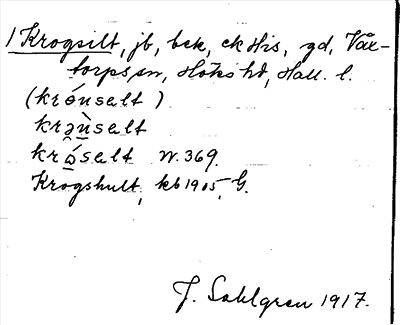 1 Krogsilt, jb, bck, ck His, gd, Våx-
torps sn, Höks hd, Hall. l.
(krǿnsalt )
krəùsalt
krǫ́salt N. 369.
Krogshult, kb 1905, G.
J. Sahlgren 1917.